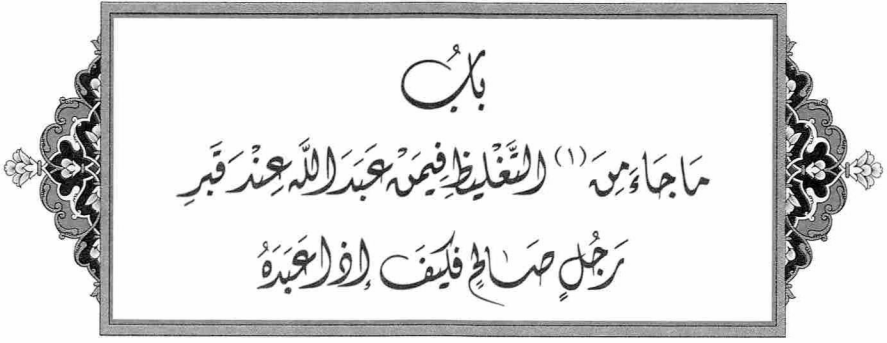 بابُ
مَا جَاءَ مِنَ (١) التَّغْلِيظِ فِيمَنْ عَبَدَ اللَّهَ عِنْدَ قَبْرِ
رَجُلٍ صَالِحٍ فَكَيْفَ إِذَا عَبَدَهُ